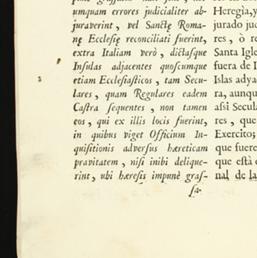 umquam errores judicialiter ab-
juraverint, vel Sanctę Roma-
nę Ecclesię reconciliati fuerint,
extra Italiam verò, dictasque
Insulas adjacentes quoscumque
etiam Ecclesiasticos, tam Secu-
lares, quam Regulares eadem
Castra sequentes, non tamen
eos, qui ex illis locis fuerint,
in quibus viget Officium In-
quisitionis adversus hæreticam
pravitatem, nisi inibi delique-
rint, ubi hæresis impunè gras-
sa-
Heregia, y
jurado ju
res, ò re
Santa Igle
fuera de I
Islas adya
aunque
assi Secula
res, que
Exercito;
que fuere
que està e
nal de la